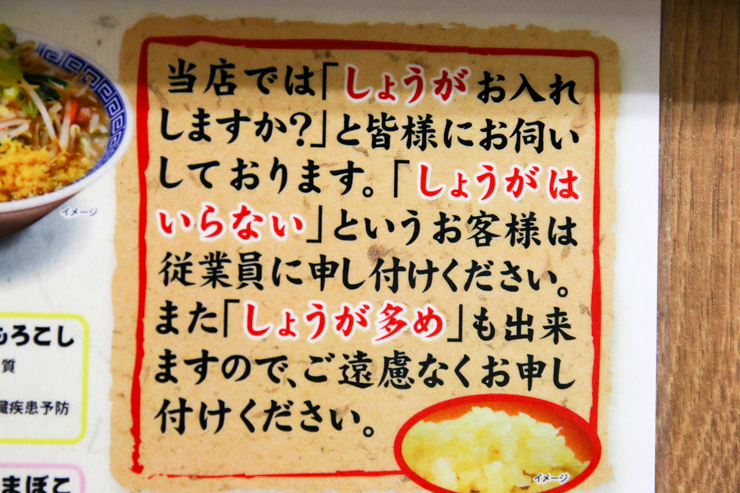 当店では「しょうがお入れ
しますか?」と皆様にお伺い
しております。「しょうがは
いらない」というお客様は
従業員に申し付けください。
また「しょうが多め」も出来
ますので、ご遠慮なくお申し
付けください。
イメージ
イメージ
もろこし
質
臓疾患予防
まぼこ